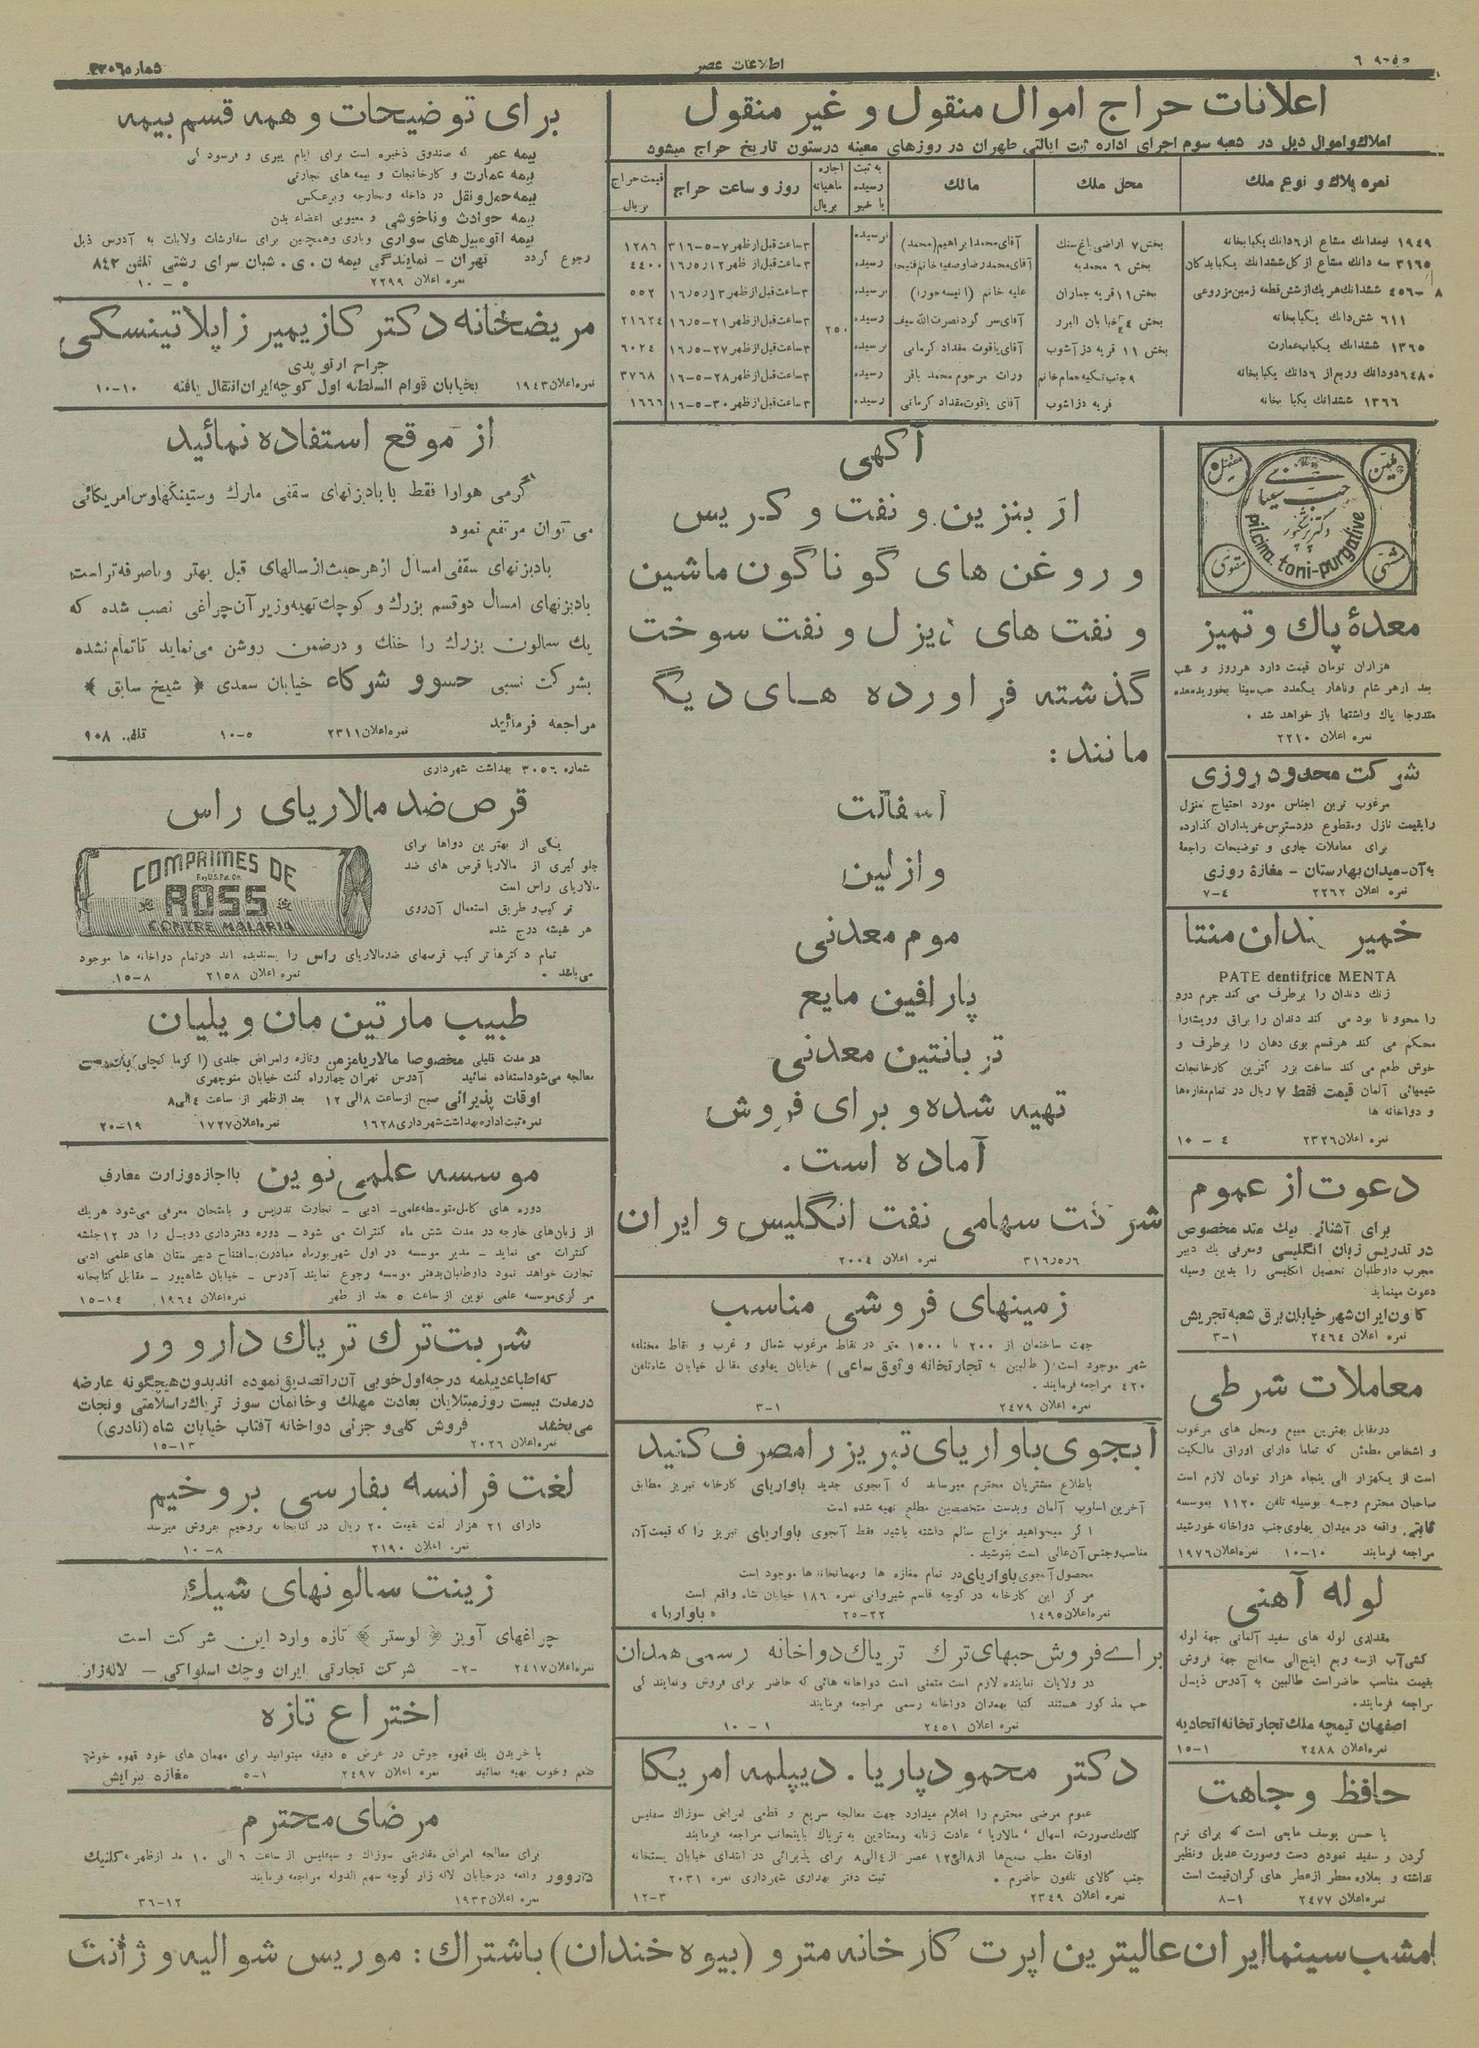 اطلاعات عصر
اعلانات حراج اموال منقول و غیر منقول
املاك و اموال ذیل در شعبه سوم اجرای اداره ثبت ایالتی طهران در روزهای معینه درستون تاریخ حراج میشود
نمره پلاك و نوع ملك
محل ملك
مالك
به ثبت رسیده یا خیر
اجاره ماهیانه بریال
روز و ساعت حراج
قیمت حراج بریال
۱۹۴۹ نیمدانك مشاع از ۶ دانك یکبابخانه بخش ۷ اراضی باغ سنك آقای محمد ابراهیم (محمد) رسیده ۳ ساعت قبل از ظهر ۷-۵-۳۱۶ ۱۲۸۶
۳۱۶۵ سه دانك مشاع از کل ششدانك یکبابدکان بخش ۹ محمدیه رسیده ۳ ساعت قبل از ظهر ۱۶٫۵٫۱۲ ۴۴۰۰
۸-۴۵۶ ششدانك هریك از شش قطعه زمین مزروعی بخش ۱۱ قریه جماران علیه خانم (انیسه حورا) رسیده ۳ ساعت قبل از ظهر ۱۶٫۵٫۱۳ ۵۵۲
۶۱۱ شش دانك یکبابخانه آقای سرگرد نصرت الله سیف رسیده ۲۵۰ ۳ ساعت قبل از ظهر ۲۱-۱۶٫۵ ۲۱۶۲۴
۱۳۶۵ ششدانك یکباب عمارت بخش ۱۱ قریه دزآشوب آقای یاقوت مقداد کرمانی رسیده ۳ ساعت قبل از ظهر ۲۷-۱۶٫۵ ۶۰۲۴
۶۴۸۰ دودانك وربع از ۶ دانك یکبابخانه ۹ جنب تکیه حمام خانم وراث مرحوم محمد باقر رسیده ۳ ساعت قبل از ظهر ۲۸-۵-۱۶ ۳۷۶۸
۱۳۶۶ ششدانك یکبا بخانه قریه دزاشوب آقای یاقوت مقداد کرمانی رسیده ۳ ساعت قبل از ظهر ۳۰-۵-۱۶ ۱۶۶۶
حب سینا
pilcina. toni-purgative
معدهٔ پاك و تمیز
هزاران تومان قیمت دارد هرروز و شب
بعد از هر شام وناهار یکعدد حب سینا بخورید معده
متدرجا پاك واشتها باز خواهد شد .
نمره اعلان ۲۲۱۰
شرکت محدود روزی
مرغوب ترین اجناس مورد احتیاج منزل
را بقیمت نازل ومقطوع دردسترس خریداران گذارده
برای معاملات جاری و توضیحات راجعه
به آن-میدان بهارستان - مغازهٔ روزی
نمره اعلان ۲۲۶۲ ۴-۷
خمیر دندان منتا
PATE dentifrice MENTA
زنك دندان را برطرف می کند جرم دردٍ
را محوو نا بود می کند دندان را براق وریشه را
محکم می کند هرقسم بوی دهان را برطرف و
خوش طعم می کند ساخت بزرگترین کارخانجات
شیمیائی آلمان قیمت فقط ۷ ریال در تمام مغازه ها
و دواخانه ها
نمره اعلان ۲۳۲۶ ۴ - ۱۰
دعوت از عموم
برای آشنائی بیك متد مخصوص
در تدریس زبان انگلیسی ومعرفی یك دبیر
مجرب داوطلبان تحصیل انگلیسی را بدین وسیله
دعوت مینماید
کانون ایران شهر خیابان برق شعبه تجریش
نمره اعلان ۲۴۶۴ ۱-۳
معاملات شرطی
درمقابل بهترین مبیع ومحل های مرغوب
و اشخاص مطمئن که تماما دارای اوراق مالکیت
است از یکهزار الی پنجاه هزار تومان لازم است
صاحبان محترم وجه بوسیله تلفن ۱۱۲۰ بموسسه
واقعه در میدان پهلوی جنب دواخانه خورشید
مراجعه فرمایند ۱۰-۱۰ نمره اعلان ۱۹۷۶
لوله آهنی
مقداری لوله های سفید آلمانی جهة لوله
کشی آب از سه ربع اینچ الی سه اینچ جهة فروش
بقیمت مناسب حاضراست طالبین به آدرس ذیل
مراجعه فرمایند.
اصفهان تیمچه ملك تجارتخانه اتحادیه
نمره اعلان ۲۴۸۸ ۱-۱۵
حافظ وجاهت
یا حسن یوسف مایعی است که برای نرم
کردن و سفید نمودن دست وصورت عدیل ونظیر
نداشته و بعلاوه معطر ازعطر های گران قیمت است
نمره اعلان ۲۴۷۷ ۱-۸
آگهی
از بنزین و نفت و کریس
و روغن های گوناگون ماشین
و نفت های دیزل و نفت سوخت
گذشته فراورده های دیگ
مانند:
اسفالت
وازلین
موم معدنی
پارافین مایع
تربانتین معدنی
تهیه شده و برای فروش
آماده است.
شرکت سهامی نفت انگلیس و ایران
نمره اعلان ۲۰۰۴ ۳۱۶٫۵٫۶
زمینهای فروشی مناسب
جهت ساختمان از ۲۰۰ تا ۱۵۰۰ متر در نقاط مرغوب شمال و غرب و نقاط مختلفه
شهر موجود است (طالبین به تجارتخانه وثوق ساعی) خیابان پهلوی مقابل خیابان شاه تلفن
۴۲۰ مراجعه فرمایند .
نمره اعلان ۲۴۷۹ ۱-۳
آبجوی باواریای تبریز را مصرف کنید
باطلاع مشتریان محترم میرساند که آبجوی جدید باواریای کارخانه تبریز مطابق
آخرین اسلوب آلمان وبدست متخصصین مطلع تهیه شده است
اگر میخواهید مزاج سالم داشته باشید فقط آبجوی باواریای تبریز را که قیمت آن
مناسب وجنس آن عالی است بنوشید .
محصول آبجوی باواریای در تمام مغازه ها ومهمانخانه ها موجود است
مرکز این کارخانه در کوچه قاسم شیروانی نمره ۱۸۶ خیابان شاه واقع است
نمره اعلان ۱۴۹۵ ۲۲-۲۵ «باواریا»
برای فروش حبهای ترك تریاك دواخانه رسمی همدان
در ولایات نماینده لازم است متمنی است دواخانه هائی که حاضر برای فروش ونمایندگی
حب مذکور هستند کتبا بهمدان دواخانه رسمی مراجعه فرمایند
نمره اعلان ۲۴۵۱ ۱ - ۱۰
دکتر محمود پاریا . دیپلمه امریکا
عموم مرضی محترم را اعلام میدارد جهت معالجه سریع و قطعی امراض سوزاك سفلیس
کك مك صورت، اسهال، مالاریا، عادت زنانه ومعتادین به تریاك باینجانب مراجعه فرمایند
اوقات مطب صبحها از ۸ الی ۱۲ عصر از ۴ الی ۸ برای پذیرائی در ابتدای خیابان پستخانه
جنب کالای تلفون حاضرم . ثبت دفتر بهداری شهرداری نمره ۲۰۳۱
نمره اعلان ۲۳۴۹ ۳-۱۲
برای توضیحات و همه قسم بیمه
بیمه عمر که صندوق ذخیره است برای ایام پیری و فرسودگی
بیمه عمارت و کارخانجات و بیمه های تجارتی
بیمه حمل و نقل در داخله وخارجه وبرعکس
بیمه حوادث و ناخوشی و معیوبی اعضاء بدن
بیمه اتومبیل های سواری وباری وهمچنین برای سفارشات ولایات به آدرس ذیل
رجوع گردد تهران - نمایندگی بیمه ن . ی . شبان سرای رشتی تلفن ۸۴۲
نمره اعلان ۲۲۹۹ ۵ - ۱۰
مریضخانه دکتر کازیمیر زاپلاتینسکی
جراح ارتوپدی
نمره اعلان ۱۹۴۳ بخیابان قوام السلطنه اول کوچه ایران انتقال یافته ۱۰-۱۰
از موقع استفاده نمائید
گرمی هوارا فقط با بادبزنهای سقفی مارك وستینگهاوس امریکائی
می توان مرتفع نمود
بادبزنهای سقفی امسال از هرحیث از سالهای قبل بهتر و باصرفه تر است
بادبزنهای امسال دوقسم بزرك و کوچك تهیه وزیر آن چراغی نصب شده که
یك سالون بزرك را خنك و درضمن روشن می نماید تاتمام نشده
بشرکت نسبی حسو و شرکاء خیابان سعدی (شیخ سابق)
مراجعه فرمائید نمره اعلان ۲۳۱۱ ۵-۱۰ تلفن ۹۰۸
شماره ۳۰۵۶ بهداشت شهرداری
قرص ضد مالاریای راس
یکی از بهترین دواها برای
جلوگیری از مالاریا قرص های ضد
مالاریای راس است
ترکیب و طریق استعمال آن روی
هر شیشه درج شده
COMPRIMES DE
ROSS
CONTRE MALARIA
تمام دکترها ترکیب قرصهای ضد مالاریای راس را پسندیده اند درتمام دواخانه ها موجود
می باشد . نمره اعلان ۲۱۵۸ ۸-۱۵
طبیب مارتین مان و یلیان
در مدت قلیلی مخصوصا مالاریا مزمن وتازه وامراض جلدی (اکزما کچلی)
معالجه می شود استفاده نمائید آدرس تهران چهارراه کنت خیابان منوچهری
اوقات پذیرائی صبح از ساعت ۸ الی ۱۲ بعد از ظهر از ساعت ۴ الی ۸
نمره ثبت اداره بهداشت شهرداری ۱۶۲۸ نمره اعلان ۱۷۲۷ ۱۹-۲۰
موسسه علمی نوین با اجازه وزارت معارف
دوره های کامل متوسطه علمی - ادبی - تجارت تدریس و بامتحان معرفی می شود هریك
از زبان های خارجه در مدت شش ماه کنترات می شود - دوره دفترداری دوبل را در ۱۲ جلسه
کنترات می نماید - مدیر موسسه در اول شهریورماه مبادرت بافتتاح دبیرستان های علمی ادبی
تجارت خواهد نمود داوطلبان بدفتر موسسه رجوع نمایند آدرس - خیابان شاهپور - مقابل کتابخانه
مرکزی موسسه علمی نوین از ساعت ۵ بعد از ظهر نمره اعلان ۱۹۶۴ ۱۴-۱۵
شربت ترك تریاك داروور
که اطباء دیپلمه درجه اول خوبی آن را تصدیق نموده اند بدون هیچگونه عارضه
درمدت بیست روز مبتلایان بعادت مهلك و خانمان سوز تریاك را سلامتی و نجات
می بخشد فروش کلی و جزئی دواخانه آفتاب خیابان شاه (نادری)
نمره اعلان ۲۰۲۶ ۱۳-۱۵
لغت فرانسه بفارسی بروخیم
دارای ۲۱ هزار لغت بقیمت ۲۰ ریال در کتابخانه بروخیم بفروش میرسد
نمره اعلان ۲۱۹۰ ۸-۱۰
زینت سالونهای شیك
چراغهای آویز (لوستر) تازه وارد این شرکت است
نمره اعلان ۲۴۱۷ -۲- شرکت تجارتی ایران وچك اسلواکی - لاله زار
اختراع تازه
با خریدن یك قهوه جوش در عرض ۵ دقیقه میتوانید برای مهمان های خود قهوه خوش
طعم وخوب تهیه نمائید نمره اعلان ۲۴۹۷ ۱-۵ مغازه پیرایش
مرضای محترم
برای معالجه امراض مقاربتی سوزاك و سیفلیس از ساعت ۶ الی ۱۰ بعد از ظهر به کلنیك
داروور واقعه درخیابان لاله زار کوچه سهم الدوله مراجعه فرمایند
نمره اعلان ۱۹۳۳ ۱۲-۳۶
امشب سینما ایران عالیترین اپرت کارخانه مترو (بیوه خندان) باشتراك : موریس شوالیه و ژانت